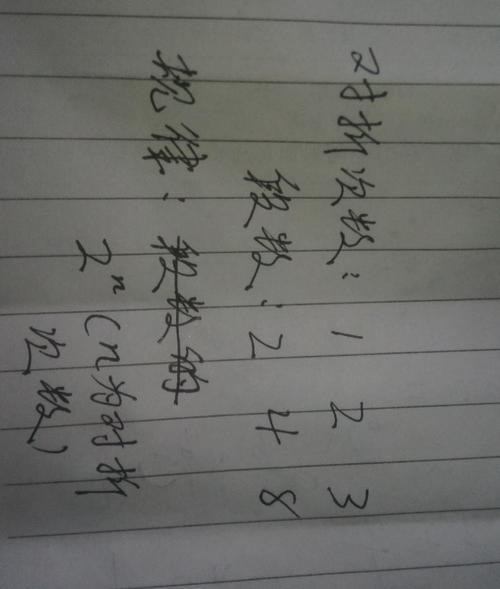 对折次数：1 2 3
段数：2 4 8
规律：段数的
2ⁿ（n为对折
次数）